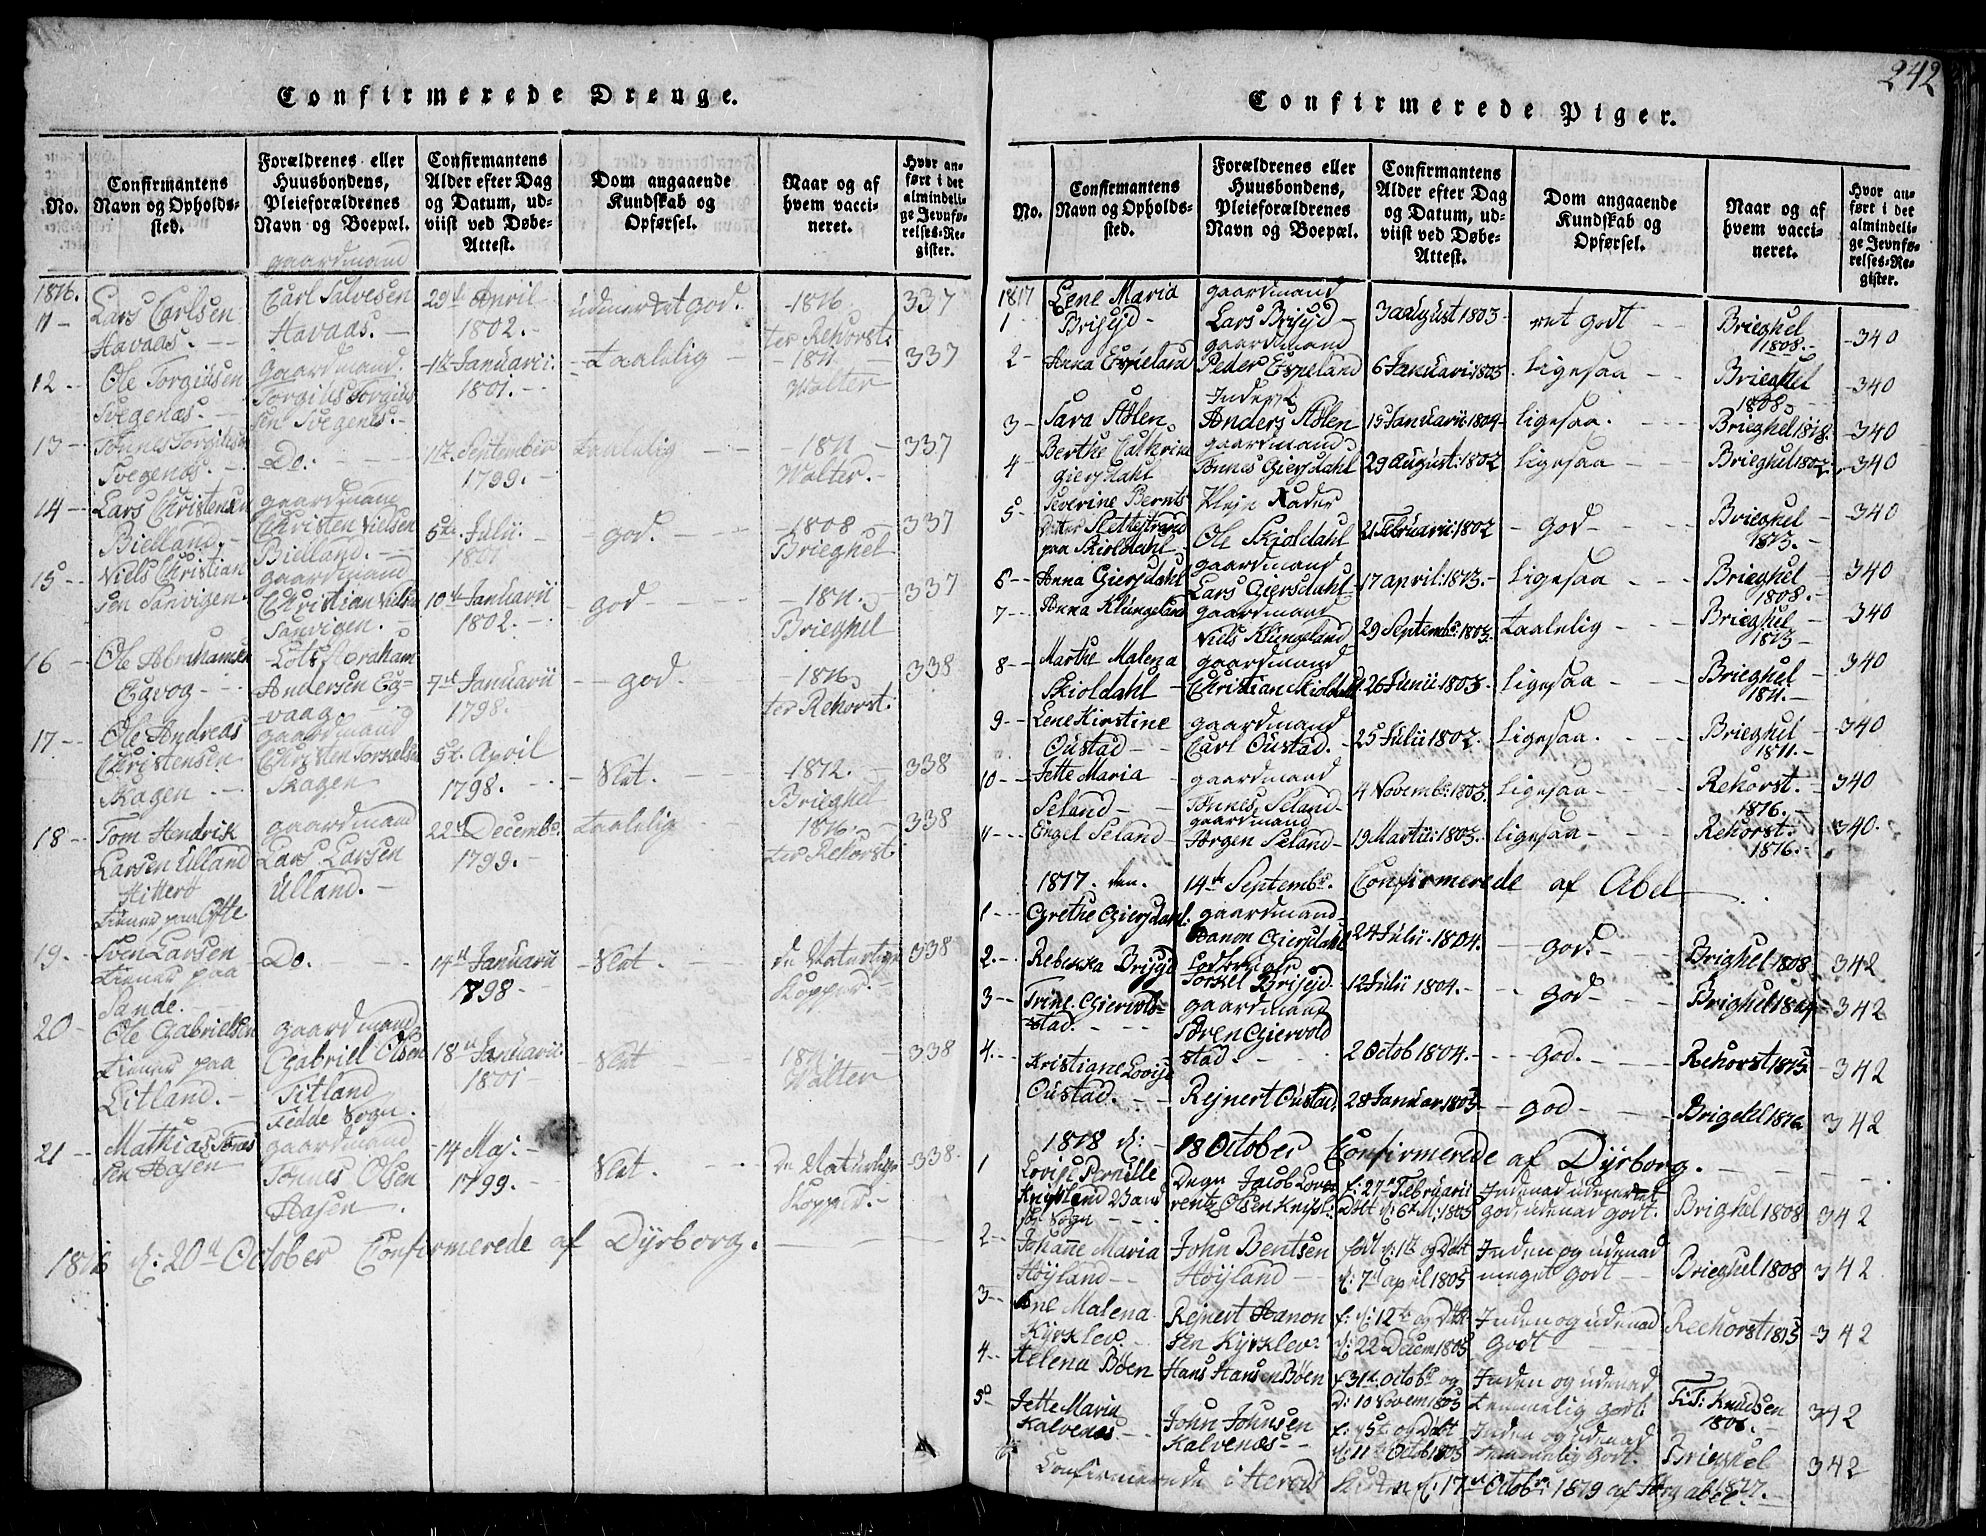 242
Confirmerede Drenge.
No.
Confirmantens Navn og Opholdssted.
Forældrenes eller Huusbondens, Pleieforældrenes Navn og Boepæl.
Confirmantens Alder efter Dag og Datum, udviist ved Døbe-Attest.
Dom angaaende Kundskab og Opførsel.
Naar og af hvem vaccineret.
Hvor anført i det almindelige Jevnførelses-Register.
1816.
11 - Lars Carlsen Havaas. gaardmand Carl Salvesen Havaas. 29de April 1802. udmerket god. 1816. ter Rehorst. 337
12 - Ole Torgiusen Svegenæs. Gaardmand. Torgius Torgiussen Svegenes. 1te Januarii 1801. Taalelig 1811 Walter 337
13 - Tønnes Torgiusen Svegenæs. Do. 11te September 1799. taalelig 1811 Walter. 337
14 - Lars Christensen Bielland. gaardmand Christen Nielsen Bielland. 5te Julii 1801 god. 1808 Brieghel 337
15 - Niels Christiansen Sanvigen. gaardmand Christian Nielsen Sanvigen. 10de Januarii 1802. god 1811. Brieghel 337
16 - Ole Abrahamsen Egvog Lots Abraham Andersen Egvaag. 7de Januarii 1798. god 1816 ter Rehorst. 338
17 - Ole Andreas Christensen Skagen gaardmand Christen Torkelsen Skagen 5te April 1798. Slet. 1812. Brieghel 338
18 - Tom Hendrik Larsen Ulland Hitterø tiener paa gaardmand Lars Larsen Ulland. 22de Decembr. 1799. taalelig 1816. ter Rehorst 338
19. Sven Larsen tiener paa Sande. Do. 14de Januarii 1798 Slet. de Naturlige Kopper. 338
20 - Ole Gabrielsen tiener paa Litland. gaardmand Gabriel Olsen Titland Fedde Sogn. 18de Januarii 1801 Slet 1811 Walter 338
21 - Mathias Tønnessen Aasen gaardmand Tønnes Olsen Aasen. 14 Maj: 1799. Slet. De Naturlige Kopper. 338.
1816 d: 20de October Confirmerede af Dyrborg.
Confirmerede Piger.
No.
Confirmantens Navn og Opholdssted.
Forældrenes eller Huusbondens, Pleieforældrenes Navn og Boepæl.
Confirmantens Alder efter Dag og Datum, udviist ved Døbe-Attest.
Dom angaaende Kundskab og Opførsel.
Naar og af hvem vaccineret.
Hvor anført i det almindelige Jevnførelses-Register.
1817
1 Lene Maria Brisejd gaardmand Lars Brisejd 3 august 1803 ret godt Brieghel 1808. 340
2 - Anna Espeland gaardmand Peder Espeland 6 Januarii 1803. Ligesaa Brieghel 1808 340
3 - Sara Stølen. Inderst. Anders Stølen 15 Januarii 1804 ligesaa. Brieghel 1818. 340
4 - Berthe Cathrine Giersdahl gaardmand Tønnes Giersdahl 29 august: 1802 ligesaa Brieghel 1802. 340
5 - Severine Berntsdatter Slettestrand paa Skioldahl Pleje Fader Ole Skioldahl 21 Februarii 1802 god Brieghel 1813. 340
6 - Anna Giersdahl gaardmand Lars Giersdahl 17 april: 1813. Ligesaa Brieghel 1808. 340
7 - Anna Klungeland gaardmand Niels Klungeland 29 Septembr. 1803. taalelig Brieghel 1813 340
8 - Marthe Malena Skioldahl gaardmand Christian Skioldahl 26 Junii 1803. ligesaa Brieghel 1811. 340
9 - Lene Kirstine Oustad gaardmand Carl Oustad. 25 Julii 1802. ligesaa. Brieghel 1811. 340
10 - Jette Maria Seland gaardmand Tønnes Seland 4 Novembr. 1803. ligesaa Rehorst. 1816. 340
11 - Engel Seland gaardmand Jørgen Seland 19 Martii: 1803. ligesaa Rehorst. 1816. 340.
1817. den. 14de Septembr. Confirmerede af Abel
1 - Grethe Giersdahl: gaardmand Hanon Giersdahl 24 Julii. 1804. god. Brighel 1808 342
2. Rebekka Brisejd Torkel Brisejd 12 Julii 1804. god Brighel 342
3 - Trine Giervoldstad. gaardmand Søren Giervoldstad. 2 Octob 1804. god. Rehorst 1815 342
4. Kristiane Lovise Oustad. Rejnert Oustad. 28 Januar 1803 god Brigehl 1816 342
1818 d: 18 October Confirmerede af Dyrborg.
1 Lovise Pernille Knibland Band Sogn Degn Jacob Lorentz Olsen f: 27de Februarii Døbt d: 6te M: 1805 Indenad udmerket god, udenad godt. Brighel 1808 342
2 - Johanne Maria Høyland John Bentsen Høyland født d: 1te og Døbt d: 7de april 1805 Inden og udenad meget godt Brieghel 1808 342
3 - Ane Malena Kyrklev. Rejnert Hanonsen Kyrklev. f: d: 12te og Døbt d: 22 Decem 1803 Inden og udenad godt Reehorst 1815 342
4 - Helena Bøen Hans Hansen Bøen f 31te Octobr og D: 10 Novem 1803 Inden og udenad temmelig godt. T: Knudsen 1806. 342
5 Jette Maria Kalvenæs John Johnsen Kalvenæs f: 5te og Døbt d: 11te Octb 1803 Inden og udenad temmelig godt. Brieghel 342
Confirmerede i Herads Kirken d: 17de Octobr: 1819 af Abel.